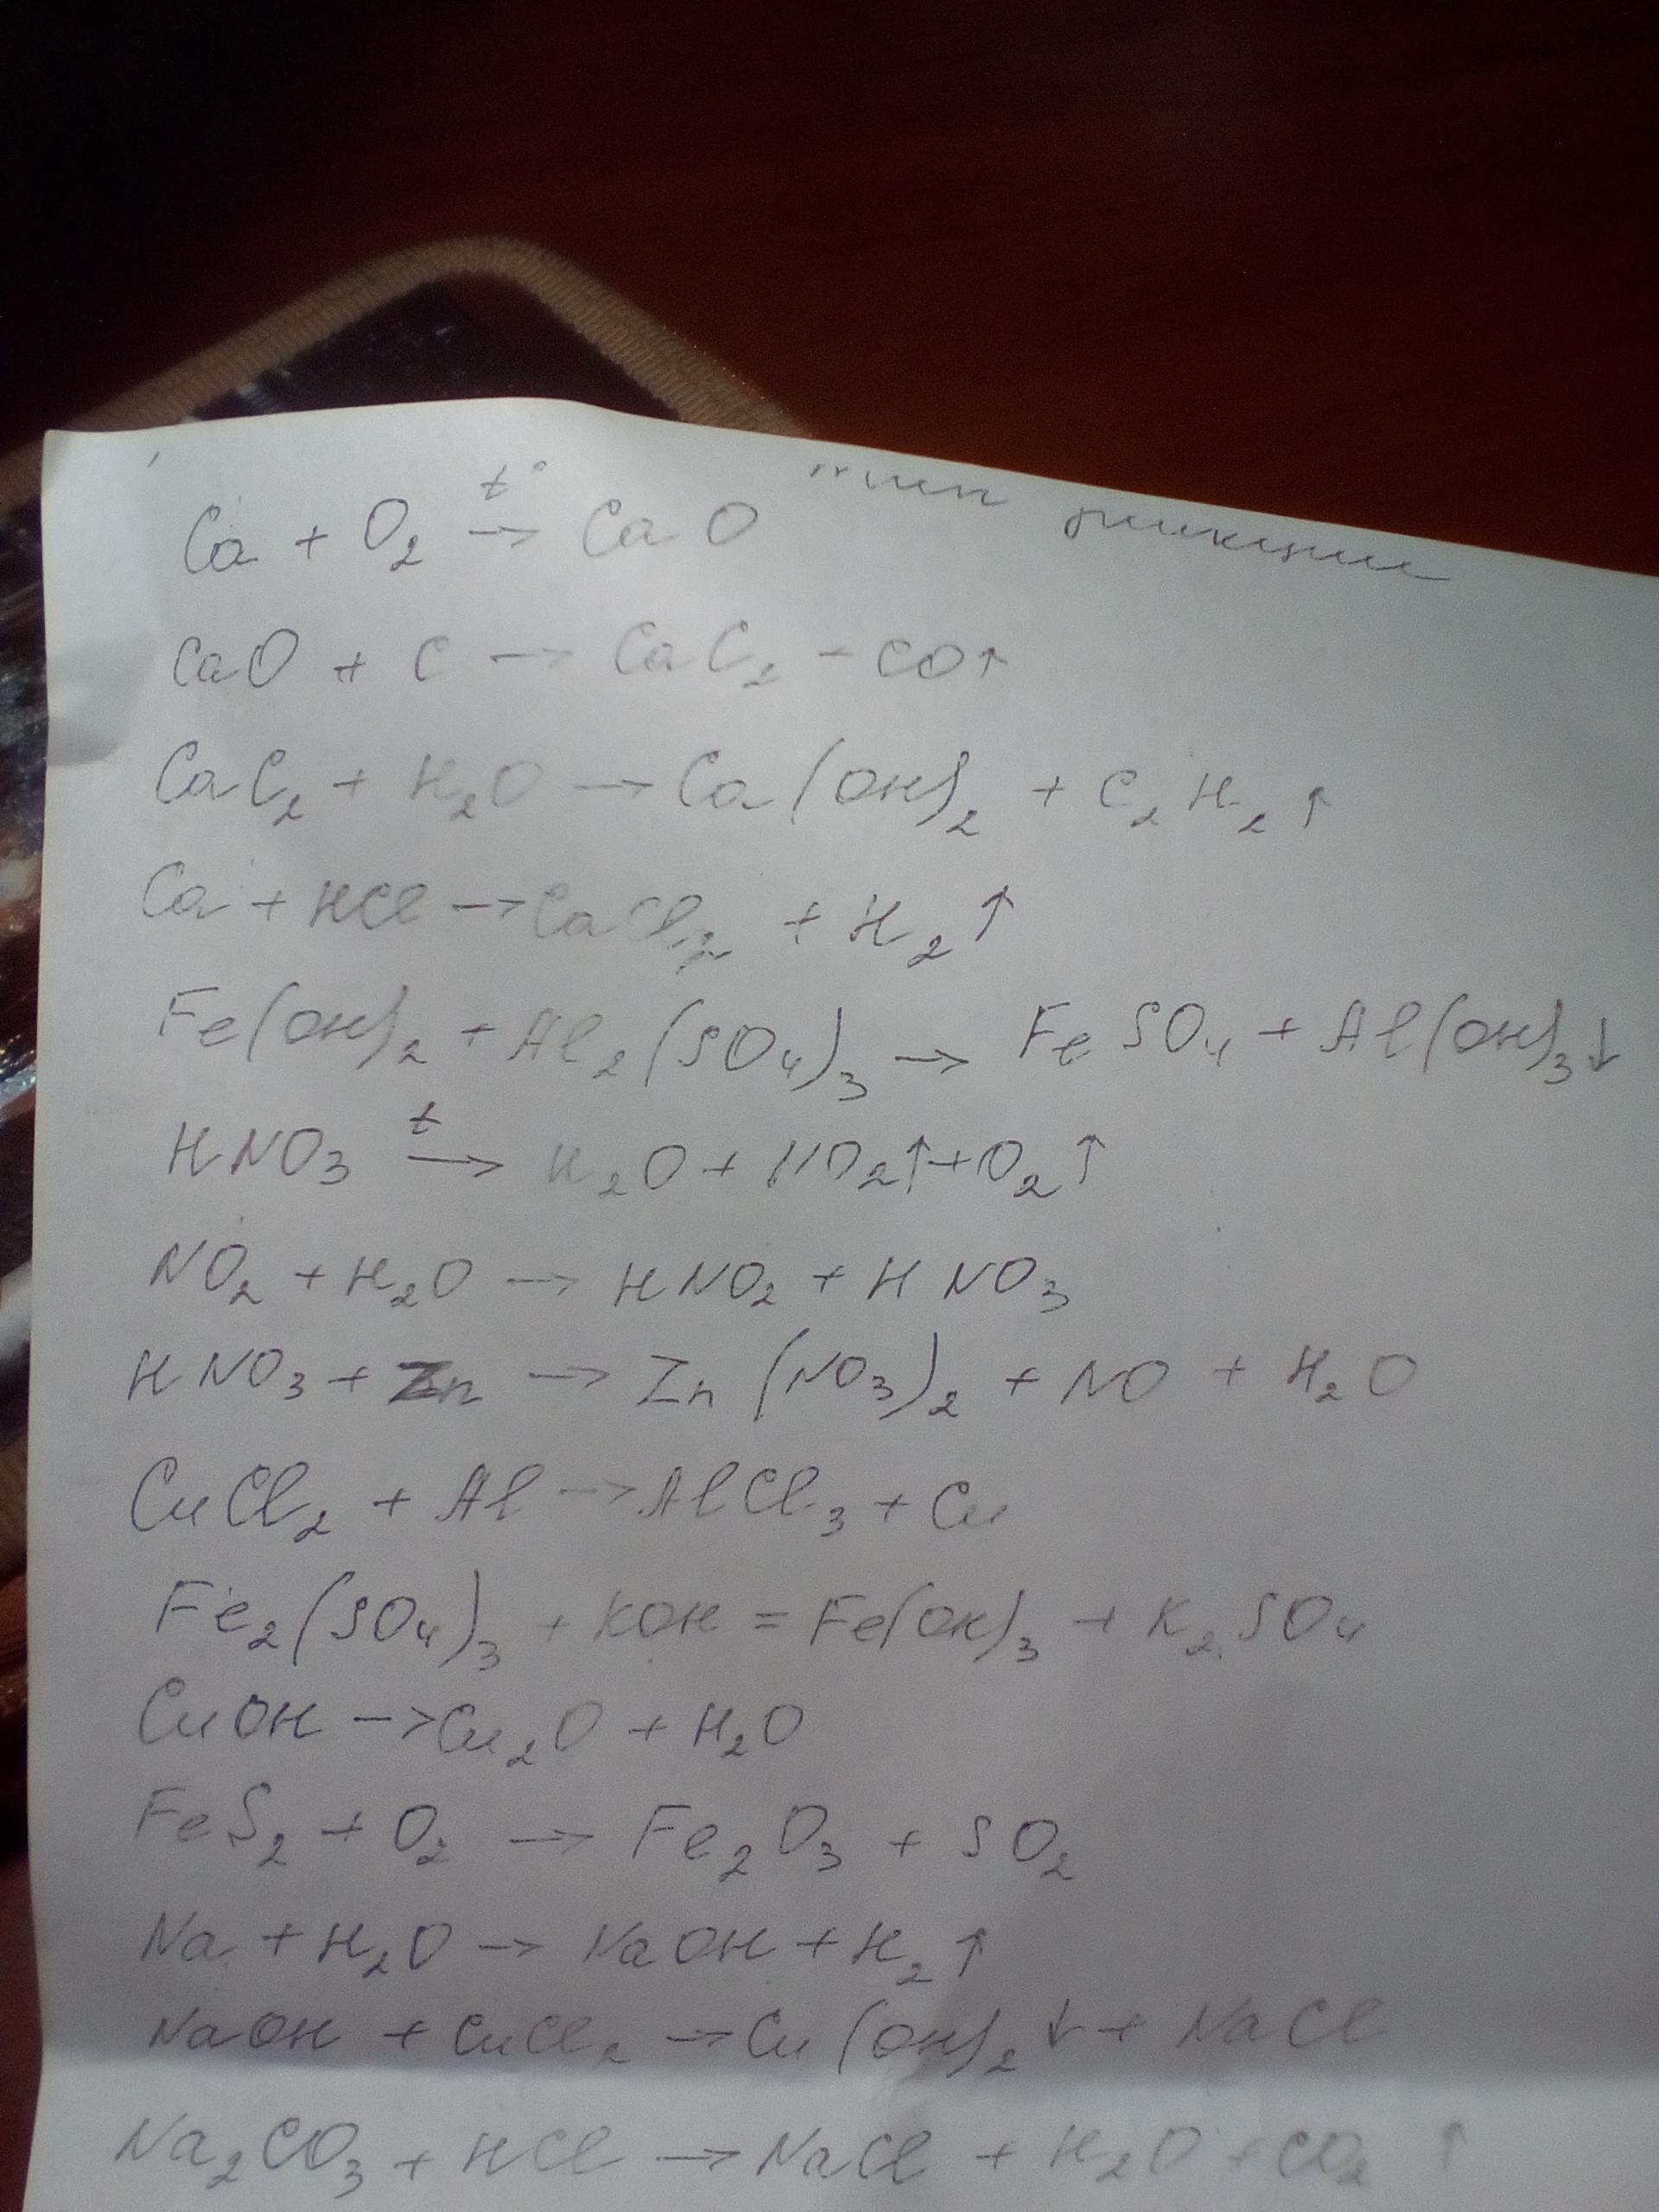 тип реакции
Ca + O₂ →t° CaO
CaO + C → CaC₂ - CO↑
CaC₂ + H₂O → Ca(OH)₂ + C₂H₂↑
Ca + HCl → CaCl₂ + H₂↑
Fe(OH)₂ + Al₂(SO₄)₃ → FeSO₄ + Al(OH)₃↓
HNO₃ →t H₂O + NO₂↑ + O₂↑
NO₂ + H₂O → HNO₂ + HNO₃
HNO₃ + Zn → Zn(NO₃)₂ + NO + H₂O
CuCl₂ + Al → AlCl₃ + Cu
Fe₂(SO₄)₃ + KOH = Fe(OH)₃ + K₂SO₄
CuOH → Cu₂O + H₂O
FeS₂ + O₂ → Fe₂O₃ + SO₂
Na + H₂O → NaOH + H₂↑
NaOH + CuCl₂ → Cu(OH)₂↓ + NaCl
Na₂CO₃ + HCl → NaCl + H₂O + CO₂↑